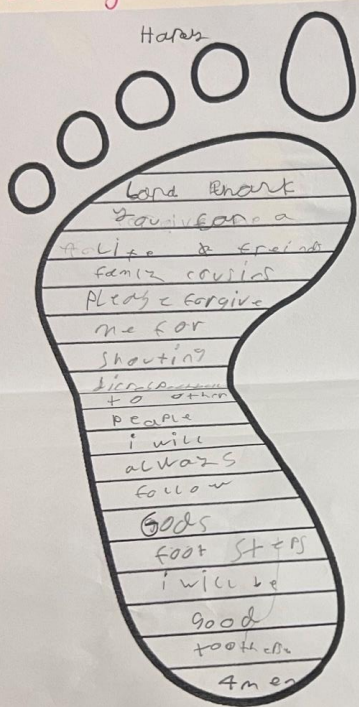 Lord thank
you for a
life & freinds
family cousins
Please forgive
me for
Shouting
to other
people
i will
always
follow
Gods
foot steps
i will be
good
toothers
4men